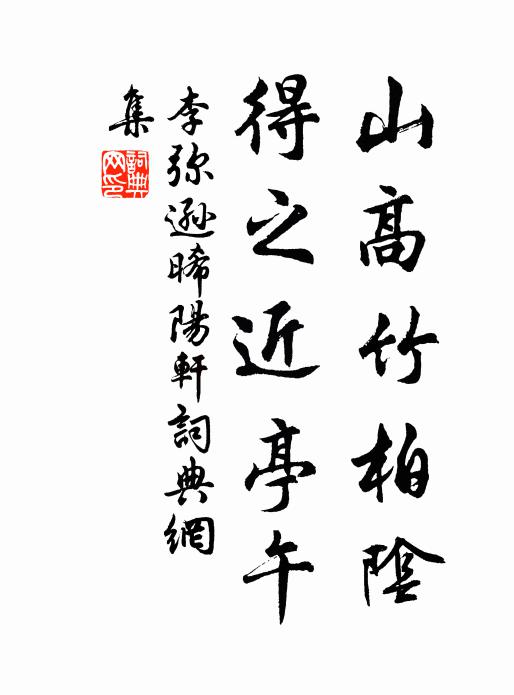 山高竹柏陰
得之近亭午
李弥遜晞陽軒詞典網
集
詞典網印